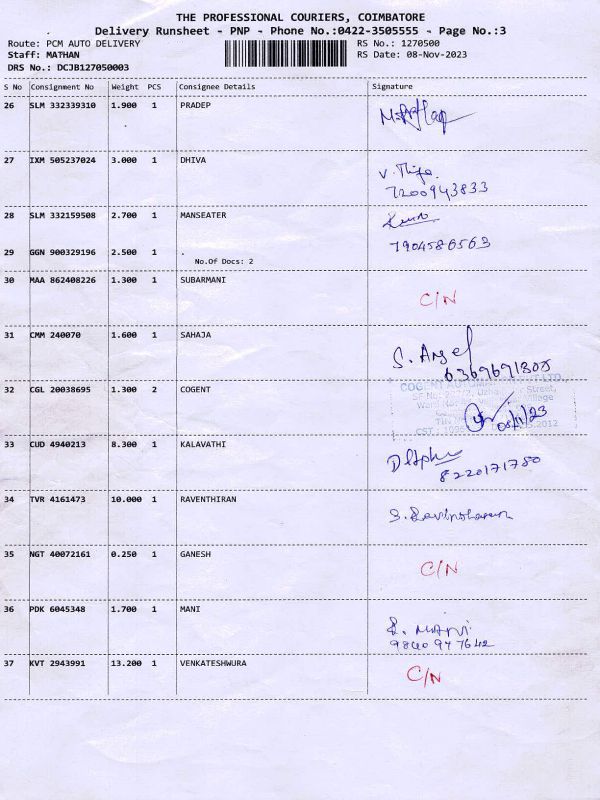 THE PROFESSIONAL COURIERS, COIMBATORE
Delivery Runsheet - PNP - Phone No.:0422-3505555 - Page No.:3
Route: PCM AUTO DELIVERY RS No.: 1270500
Staff: MATHAN RS Date: 08-Nov-2023
DRS No.: DCJB127050003
S No Consignment No Weight PCS Consignee Details Signature
26 SLM 332339310 1.900 1 PRADEP
27 IXM 505237024 3.000 1 DHIVA
7200943833
28 SLM 332159508 2.700 1 MANSEATER
29 GGN 900329196 2.500 1 . 7904586563
No.Of Docs: 2
30 MAA 862408226 1.300 1 SUBARMANI
C/N
31 CMM 240070 1.600 1 SAHAJA
S. Angel
6369691300
32 CGL 20038695 1.300 2 COGENT
08/11/23
33 CUD 4940213 8.300 1 KALAVATHI
8220171780
34 TVR 4161473 10.000 1 RAVENTHIRAN
35 NGT 40072161 0.250 1 GANESH
C/N
36 PDK 6045348 1.700 1 MANI
R. MANI
9840947642
37 KVT 2943991 13.200 1 VENKATESHWURA
C/N